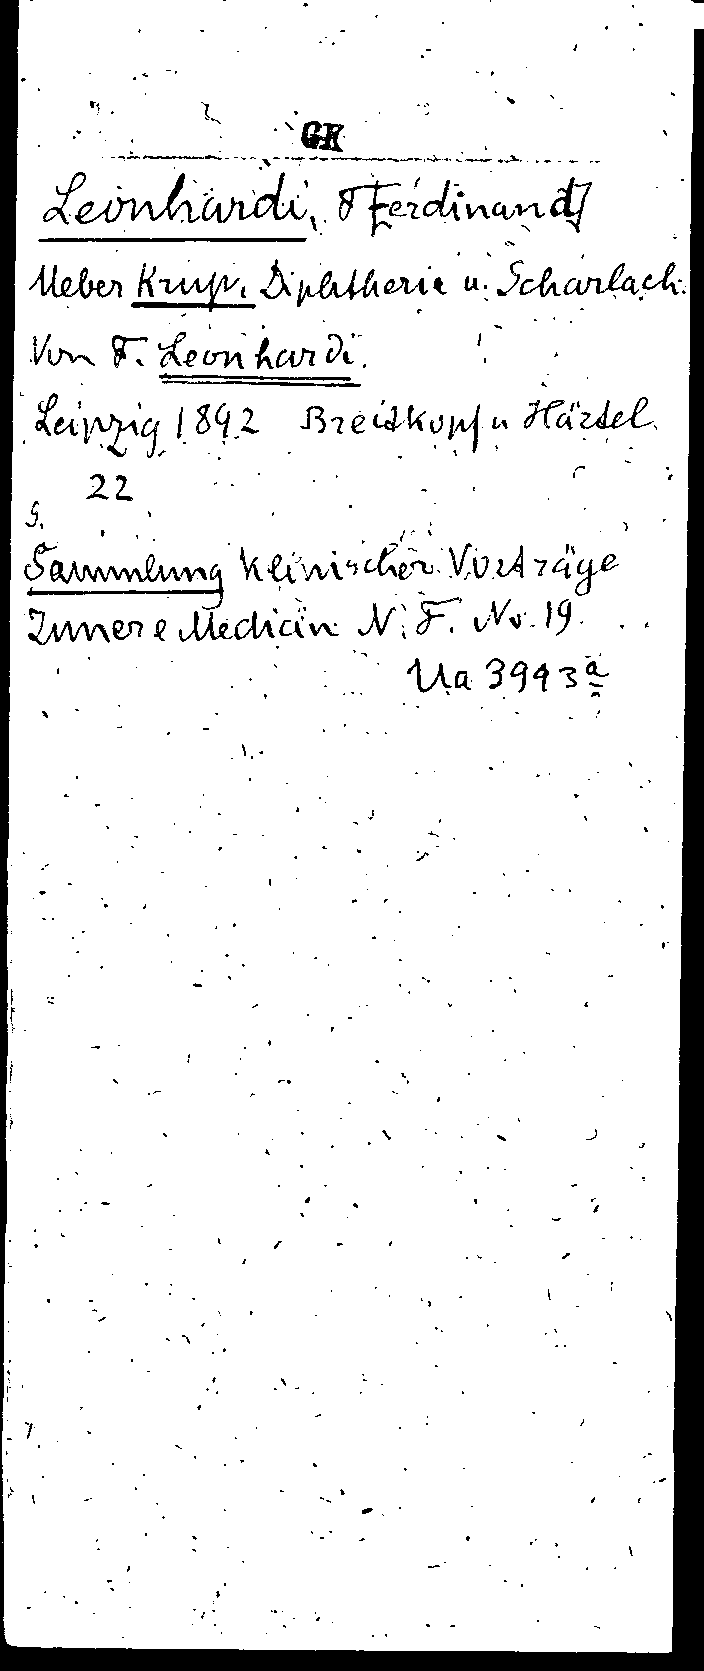 GK
Leonhardi, F[erdinand]
Ueber Krup, Diphtherie u. Scharlach.
Von F. Leonhardi.
Leipzig 1892 Breitkopf u Härtel
22
S.
Sammlung klinischer Vorträge
Innere Medicin N. F. No. 19.
Ua 3993ª